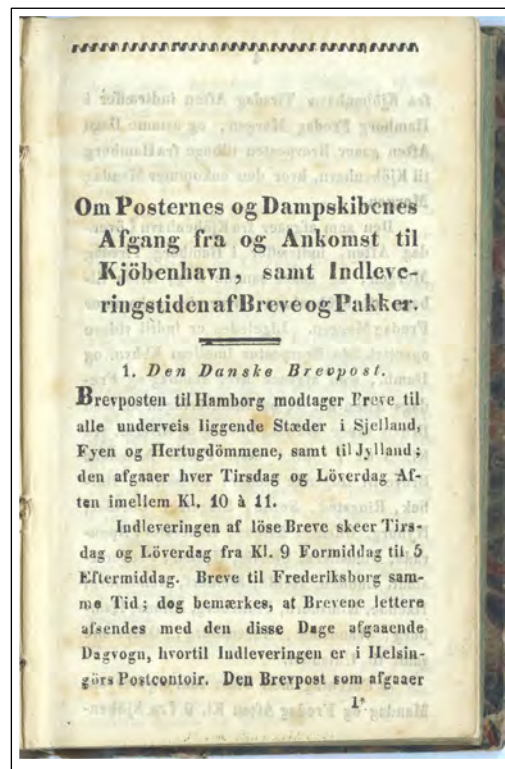 Om Posternes og Dampskibenes
Afgang fra og Ankomst til
Kjöbenhavn, samt Indleve-
ringstiden af Breve og Pakker.
1. Den Danske Brevpost.
Brevposten til Hamborg modtager Breve til
alle underveis liggende Stæder i Sjelland,
Fyen og Hertugdömmene, samt til Jylland;
den afgaaer hver Tirsdag og Löverdag Af-
ten imellem Kl. 10 à 11.
Indleveringen af löse Breve skeer Tirs-
dag og Löverdag fra Kl. 9 Formiddag til 5
Eftermiddag. Breve til Frederiksborg sam-
me Tid; dog bemærkes, at Brevene lettere
afsendes med den disse Dage afgaaende
Dagvogn, hvortil Indleveringen er i Helsin-
görs Postcontoir. Den Brevpost som afgaaer
1*